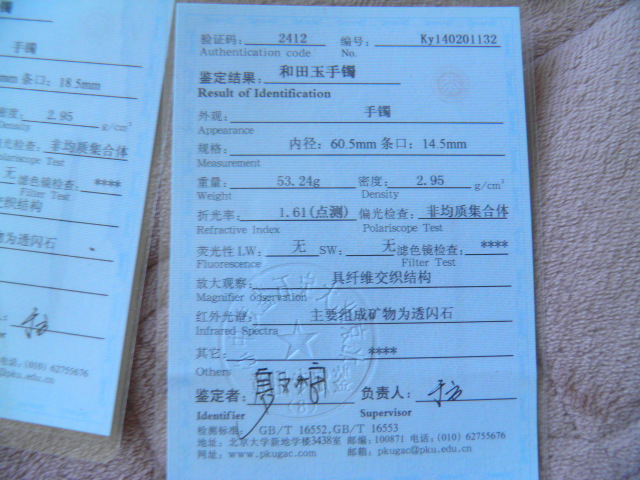 手镯
mm 条口：18.5mm
密度： 2.95 g/cm³
Density
偏光检查： 非均质集合体
Polariscope Test
无 滤色镜检查： ****
Filter Test
交织结构
物为透闪石
电话：(010) 62755676
@pku.edu.cn
验证码： 2412 编号： Ky140201132
Authentication code No.
鉴定结果： 和田玉手镯
Result of Identification
外观： 手镯
Appearance
规格： 内径：60.5mm 条口：14.5mm
Measurement
重量： 53.24g 密度： 2.95 g/cm³
Weight Density
折光率： 1.61(点测) 偏光检查： 非均质集合体
Refractive Index Polariscope Test
荧光性 LW： 无 SW： 无 滤色镜检查： ****
Fluorescence Filter Test
放大观察： 具纤维交织结构
Magnifier observation
红外光谱： 主要组成矿物为透闪石
Infrared Spectra
其它： ****
Others
鉴定者： 负责人：
Identifier Supervisor
检测标准： GB/T 16552,GB/T 16553
地址：北京大学新地学楼3438室 邮编：100871 电话：(010) 62755676
网址：www.pkugac.com 邮箱：pkugac@pku.edu.cn